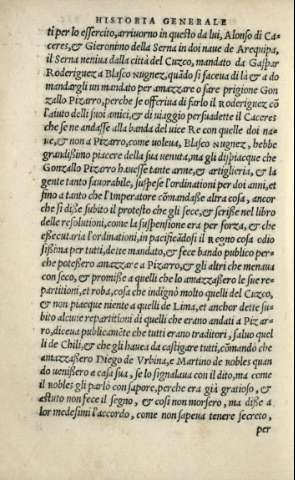 HISTORIA GENERALE
ti per lo essercito, arriuorno in questo da lui, Alonso di Ca-
ceres, & Gieronimo della Serna in doi naue de Arequipa,
il Serna neniua dalla città del Cuzco, mandato da Gaspar
Roderiguez a Blasco Nugnez, quãdo si faceua di là & a do
mandargli un mandato per amazzare o fare prigione Gon
zallo Pizarro, perche se offeriua di farlo il Roderiguez cõ
l'aiuto delli suoi amici, & di uiaggio persuadette il Caceres
che se ne andasse alla banda del uice Re con quelle doi na
ue, & non a Pizarro, come uoleua, Blasco Nugnez, hebbe
grandissimo piacere della sua uenuta, ma gli dispiacque che
Gonzallo Pizarro hauesse tante arme, & artigleria, & la
gente tanto fauorabile, suspese l'ordinationi per doi anni, et
fino a tanto che l'Imperatore cõmandasse altra cosa, ancor
che si disse subito il protesto che gli fece, & scrisse nel libro
delle resolutioni, come la suspensione era per forza, & che
essecutaria l'ordinationi, in pacificãdosi il Regno cosa odio
sissima per tutti, dette mandato, & fece bando publico per-
che potessero amazzare a Pizarro, & gli altri che menaua
con seco, & promisse a quelli che lo amazzassero le sue re-
partitioni, et roba, cosa che indignò molto quelli del Cuzco,
& non piacque niente a quelli de Lima, et anchor dette su-
bito alcune repartitioni di quelli che erano andati a Piz ar-
ro, diceua publicamẽte che tutti erano traditori, saluo quel
li de Chili, & che gli haueа da castigare tutti, cõmandò che
amazzassero Diego de Vrbina, e Martino de nobles quan
do uenissero a casa sua, se lo signalaua con il dito, ma come
il nobles gli parlò con sapore, perche era già gratioso, &
astuto non fece il segno, & cosi non morsero, ma disse a
lor medesimi l'accordo, come non sapeua tenere secreto,
per